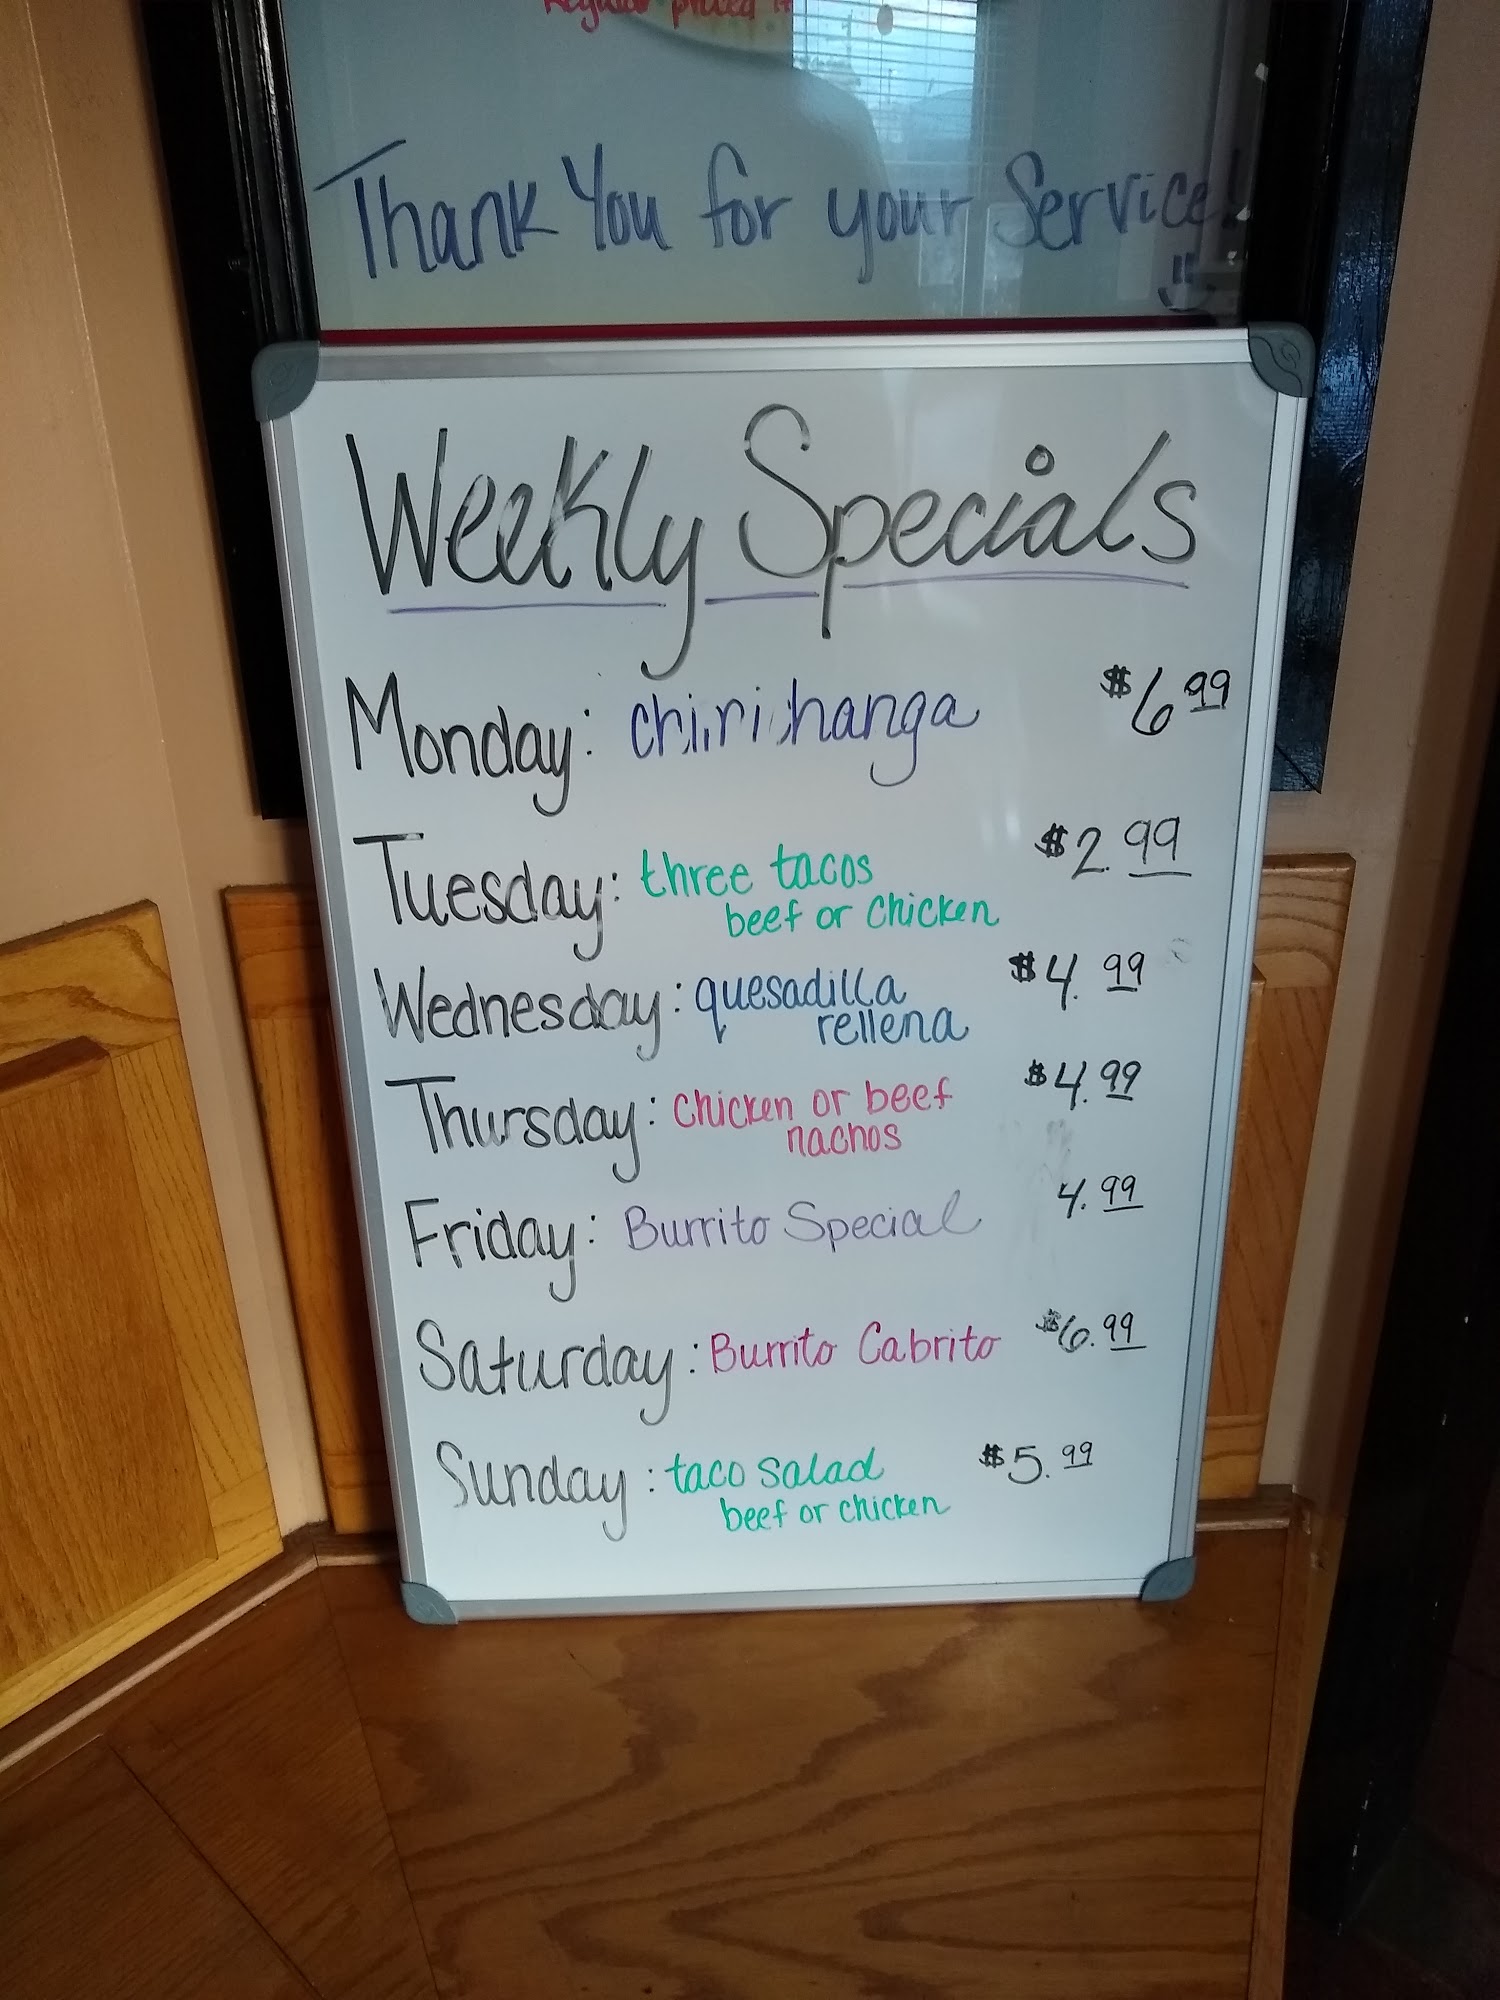 Regular priced it
Thank You for your Service!
Weekly Specials
Monday: $6.99
Tuesday: three tacos $2.99
beef or chicken
Wednesday: quesadilla $4.99
rellena
Thursday: chicken or beef $4.99
nachos
Friday: Burrito Special 4.99
Saturday: Burrito Cabrito $6.99
Sunday: taco salad $5.99
beef or chicken